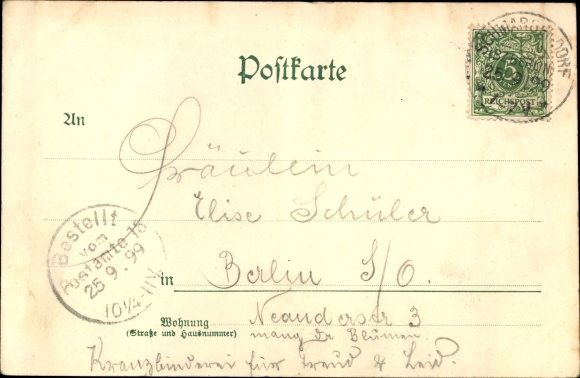 Postkarte
5
REICHSPOST
25 99
An
Fräulein
Elise Schüler
Bestellt
vom
Postamte 16
25 9. 99
10¼-11½V
in Berlin S/O.
Wohnung
(Straße und Hausnummer)
Neanderstr 3
mang de Blumen.
Kranzbinderei für Freud & Leid.